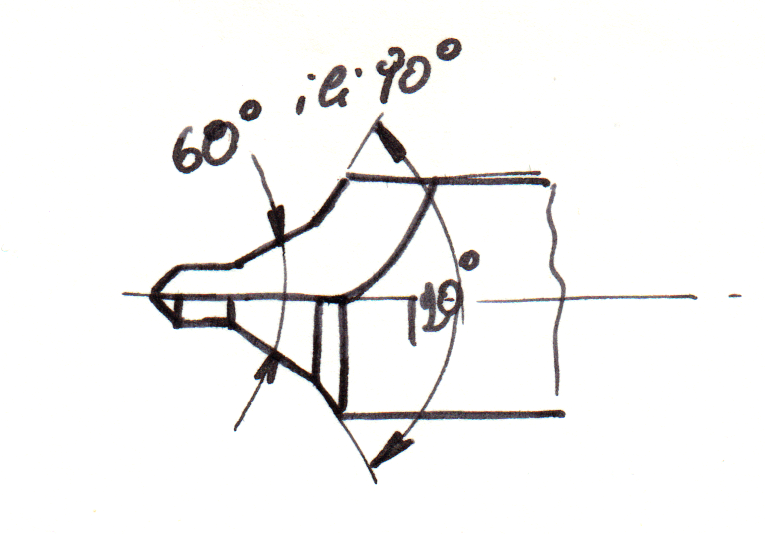 60° ili 90°
120°